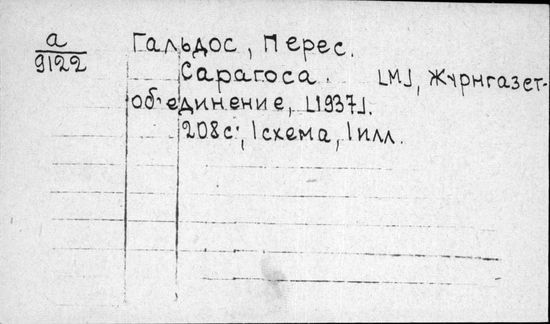 а
9122
Гальдос, Перес.
Сарагоса. [М], Журнгазет-
об'единение, [1937].
208с., 1схема, 1илл.